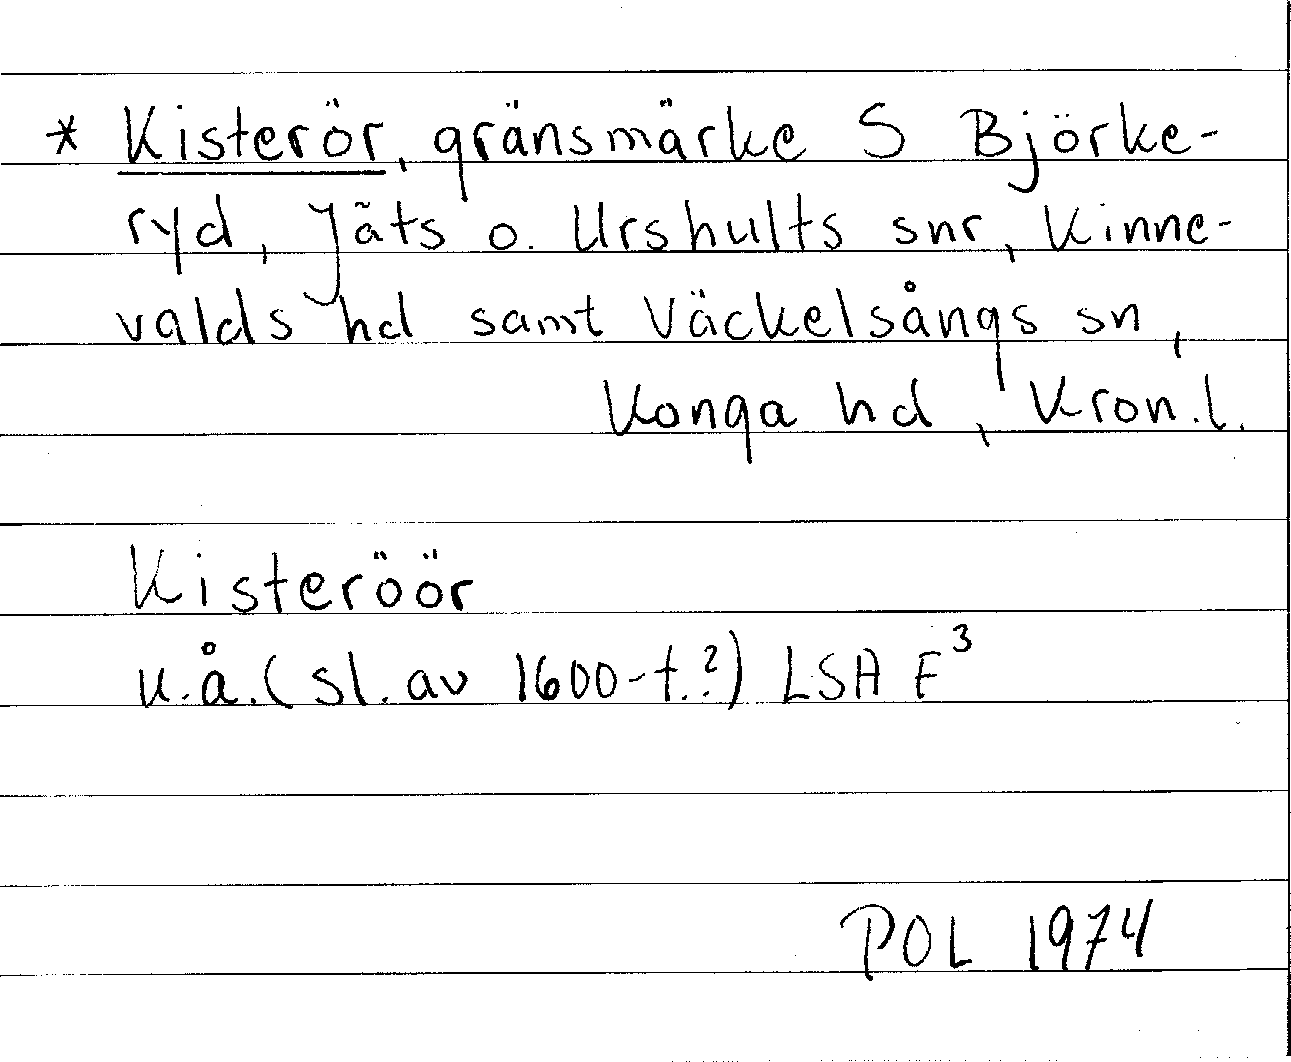 * Kisterör, gränsmärke S Björke-
ryd, Jäts o. Urshults snr, Kinne-
valds hd samt Väckelsångs sn,
Konga hd, Kron.l.
Kisteröör
u.å. (sl. av 1600-t.?) LSA F³
POL 1974